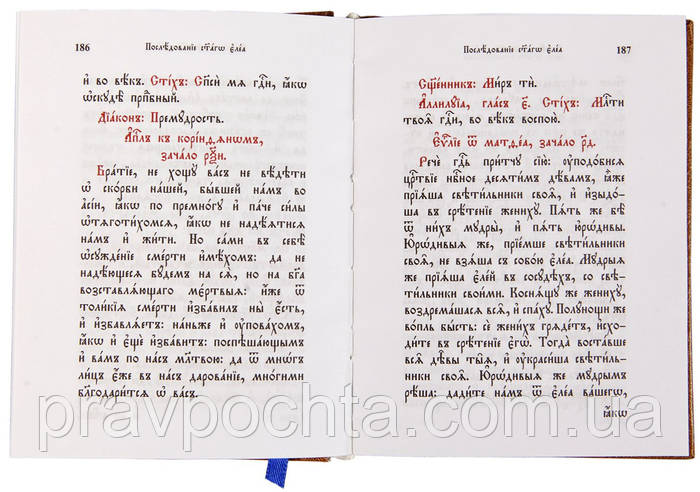 186 Послѣ́дованїе ст҃а́гѡ є҆ле́а
и҆ во вѣ́къ. Сті́хъ: Спⷭ҇и́ мѧ гдⷭ҇и, ꙗ҆́кѡ
ѡ҆скꙋдѣ̀ прпⷣбный.
Дїа́конъ: Премꙋ́дрость.
А҆пⷭ҇лъ къ корі́нѳѧнѡмъ,
зача́ло рѯ҃и.
Бра́тїе, не хощꙋ̀ ва́съ не вѣ́дѣти
ѡ҆ ско́рби на́шей, бы́вшей на́мъ во
а҆сі́и, ꙗ҆́кѡ по премно́гꙋ и҆ па́че си́лы
ѡ҆тѧготи́хомсѧ, ꙗ҆́кѡ не надѣ́ѧтисѧ
на́мъ и҆ жи́ти. Но са́ми въ себѣ̀
ѡ҆сꙋжде́нїе сме́рти и҆мѣ́хомъ: да не
надѣ́ющесѧ бꙋ́демъ на сѧ̀, но на бг҃а
возставлѧ́ющаго ме́ртвыѧ: и҆́же ѿ
толи́кїѧ сме́рти и҆зба́вилъ ны̀ є҆́сть,
и҆ и҆збавлѧ́етъ: на́ньже и҆ ᲂу҆пова́хомъ,
ꙗ҆́кѡ и҆ є҆щѐ и҆зба́витъ: поспѣшꙋ́ющымъ
и҆ ва́мъ по на́съ мл҃твою: да ѿ мно́гъ
ли́цъ є҆́же въ на́съ дарова́нїе, мно́гими
бл҃годари́тсѧ ѡ҆ ва́съ.
Послѣ́дованїе ст҃а́гѡ є҆ле́а 187
Сщ҃е́нникъ: Ми́ръ тѝ.
А҆ллилꙋ́їа, гла́съ є҃. Сті́хъ: Млⷭ҇ти
твоѧ̑ гдⷭ҇и, во вѣ́къ воспою̀.
Є҆ѵⷢ҇лїе ѿ матѳе́а, зача́ло рд҃.
Речѐ гдⷭ҇ь при́тчꙋ сїю̀: ᲂу҆подо́бисѧ
црⷭ҇твїе нбⷭ҇ное десѧти́мъ дѣ́вамъ, ꙗ҆̀же
прїѧ́ша свѣти́льники своѧ̑, и҆ и҆зыдо́-
ша въ срѣ́тенїе женихꙋ̀. Пѧ́ть же бѣ̀
ѿ ни́хъ мꙋ́дры, и҆ пѧ́ть ю҆ро́дивы.
Ю҆ро́дивыѧ же, прїе́мшѧ свѣти́льники
своѧ̑, не взѧ́ша съ собо́ю є҆ле́а. Мꙋ́дрыѧ
же прїѧ́ша є҆ле́й въ сосꙋ́дѣхъ, со свѣ-
ти́льники свои́ми. Коснѧ́щꙋ же женихꙋ̀,
воздрема́шасѧ всѧ̑, и҆ спа́хꙋ. Полꙋ́нощи же
во́пль бы́сть: сѐ жени́хъ грѧде́тъ, и҆схо-
ди́те въ срѣ́тенїе є҆гѡ̀. Тогда̀ воста́вше
всѧ̑ дѣ̑вы ты̑ѧ, и҆ ᲂу҆краси́ша свѣти́ль-
ники своѧ̑. Ю҆ро́дивыѧ же мꙋ́дрымъ
рѣ́ша: дади́те на́мъ ѿ є҆ле́а ва́шегѡ,
ꙗ҆́кѡ
www.pravpochta.com.ua